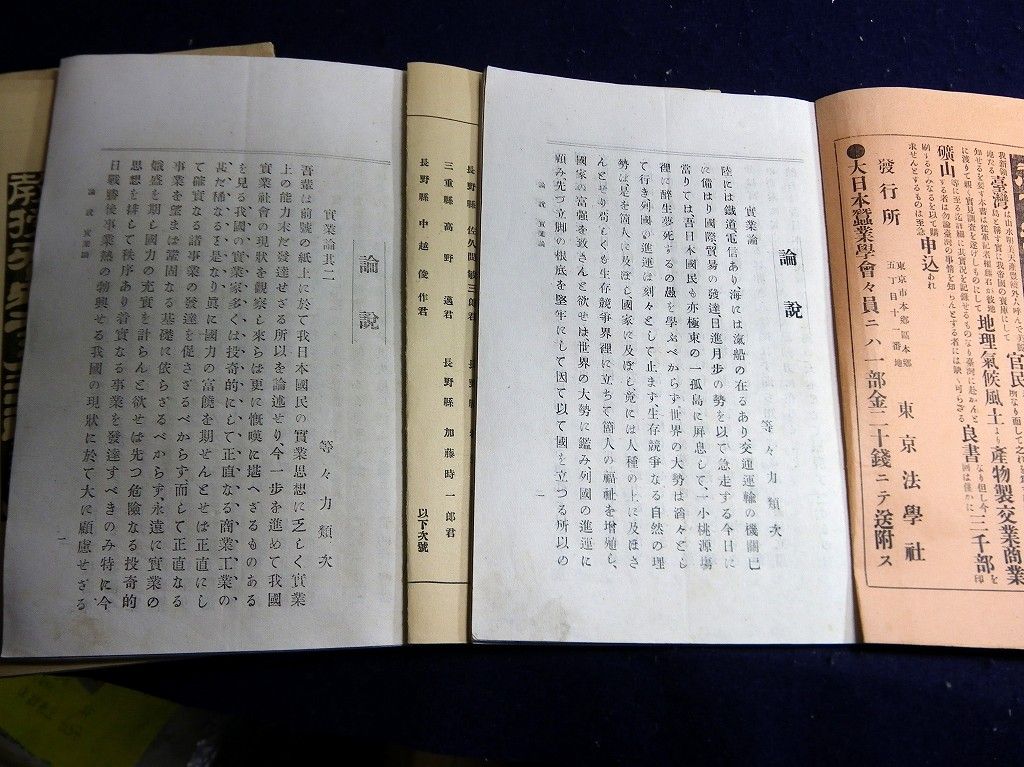 臺灣
官民
地理氣候風土
產物製
交業商業
礦山
良書
三千部
申込あれ
發行所
東京市本鄕區本鄕
五丁目十番地
東京法學社
●大日本蠶業學會々員ニハ一部金二十錢ニテ送附ス
論說
實業論
等々力類次
陸には鐵道電信あり海には滊船の在るあり、交通運輸の機關已
に備はり國際貿易の發達日進月步の勢を以て急走する今日に
當りては、吾日本國民も亦極東の一孤島に屏息して、一小桃源塲
裡に醉生夢死するの愚を學ぶべからず世界の大勢は滔々とし
て行き列國の進運は刻々として止まず、生存競爭なる自然の理
勢は是を箇人に及ぼし國家に及ぼし、竟には人種の上に及ぼさ
んとせり苟くも生存競爭界裡に立ちて箇人の福祉を增殖し、
國家の富强を致さんと欲せは世界の大勢に鑑み列國の進運に
顧み先づ立脚の根底を堅牢にして因て以て國を立つる所以の
論說 實業論
一
長野縣 佐久間
三郎君
三重縣 高野
君
長野縣 加藤時一郎君
長野縣 中越俊作君
以下次號
論說
實業論其二
等々力類次
吾輩は前號の紙上に於て我日本國民の實業思想に乏しく實業
上の能力未だ發達せざる所以を論述せり、今一步を進めて我國
實業社會の現狀を觀察し來らは更に慨嘆に堪へざるものある
を見る我國の實業家多くは投奇的にして、正直なる商業工業の、
甚だ稀なるを是なり眞に國力の富饒を期せんとせば正直にし
て確實なる諸事業の發達を促さざるべからす、而して正直なる
事業を望まば鞏固なる基礎に依らざるべからず、永遠に實業の
熾盛を期し國力の充實を計らんと欲せば先つ危險なる投奇的
思想を排して秩序あり着實なる事業を發達すべきのみ特に今
日戰勝後事業熱の勃興せる我國の現狀に於て大に顧慮せざる
論說 實業論
一